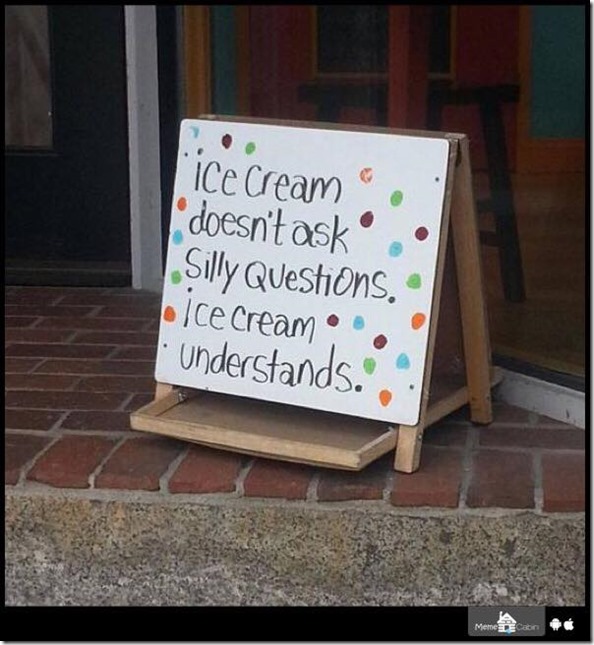 ice cream
doesn't ask
Silly Questions.
ice cream
understands.
Meme Cabin